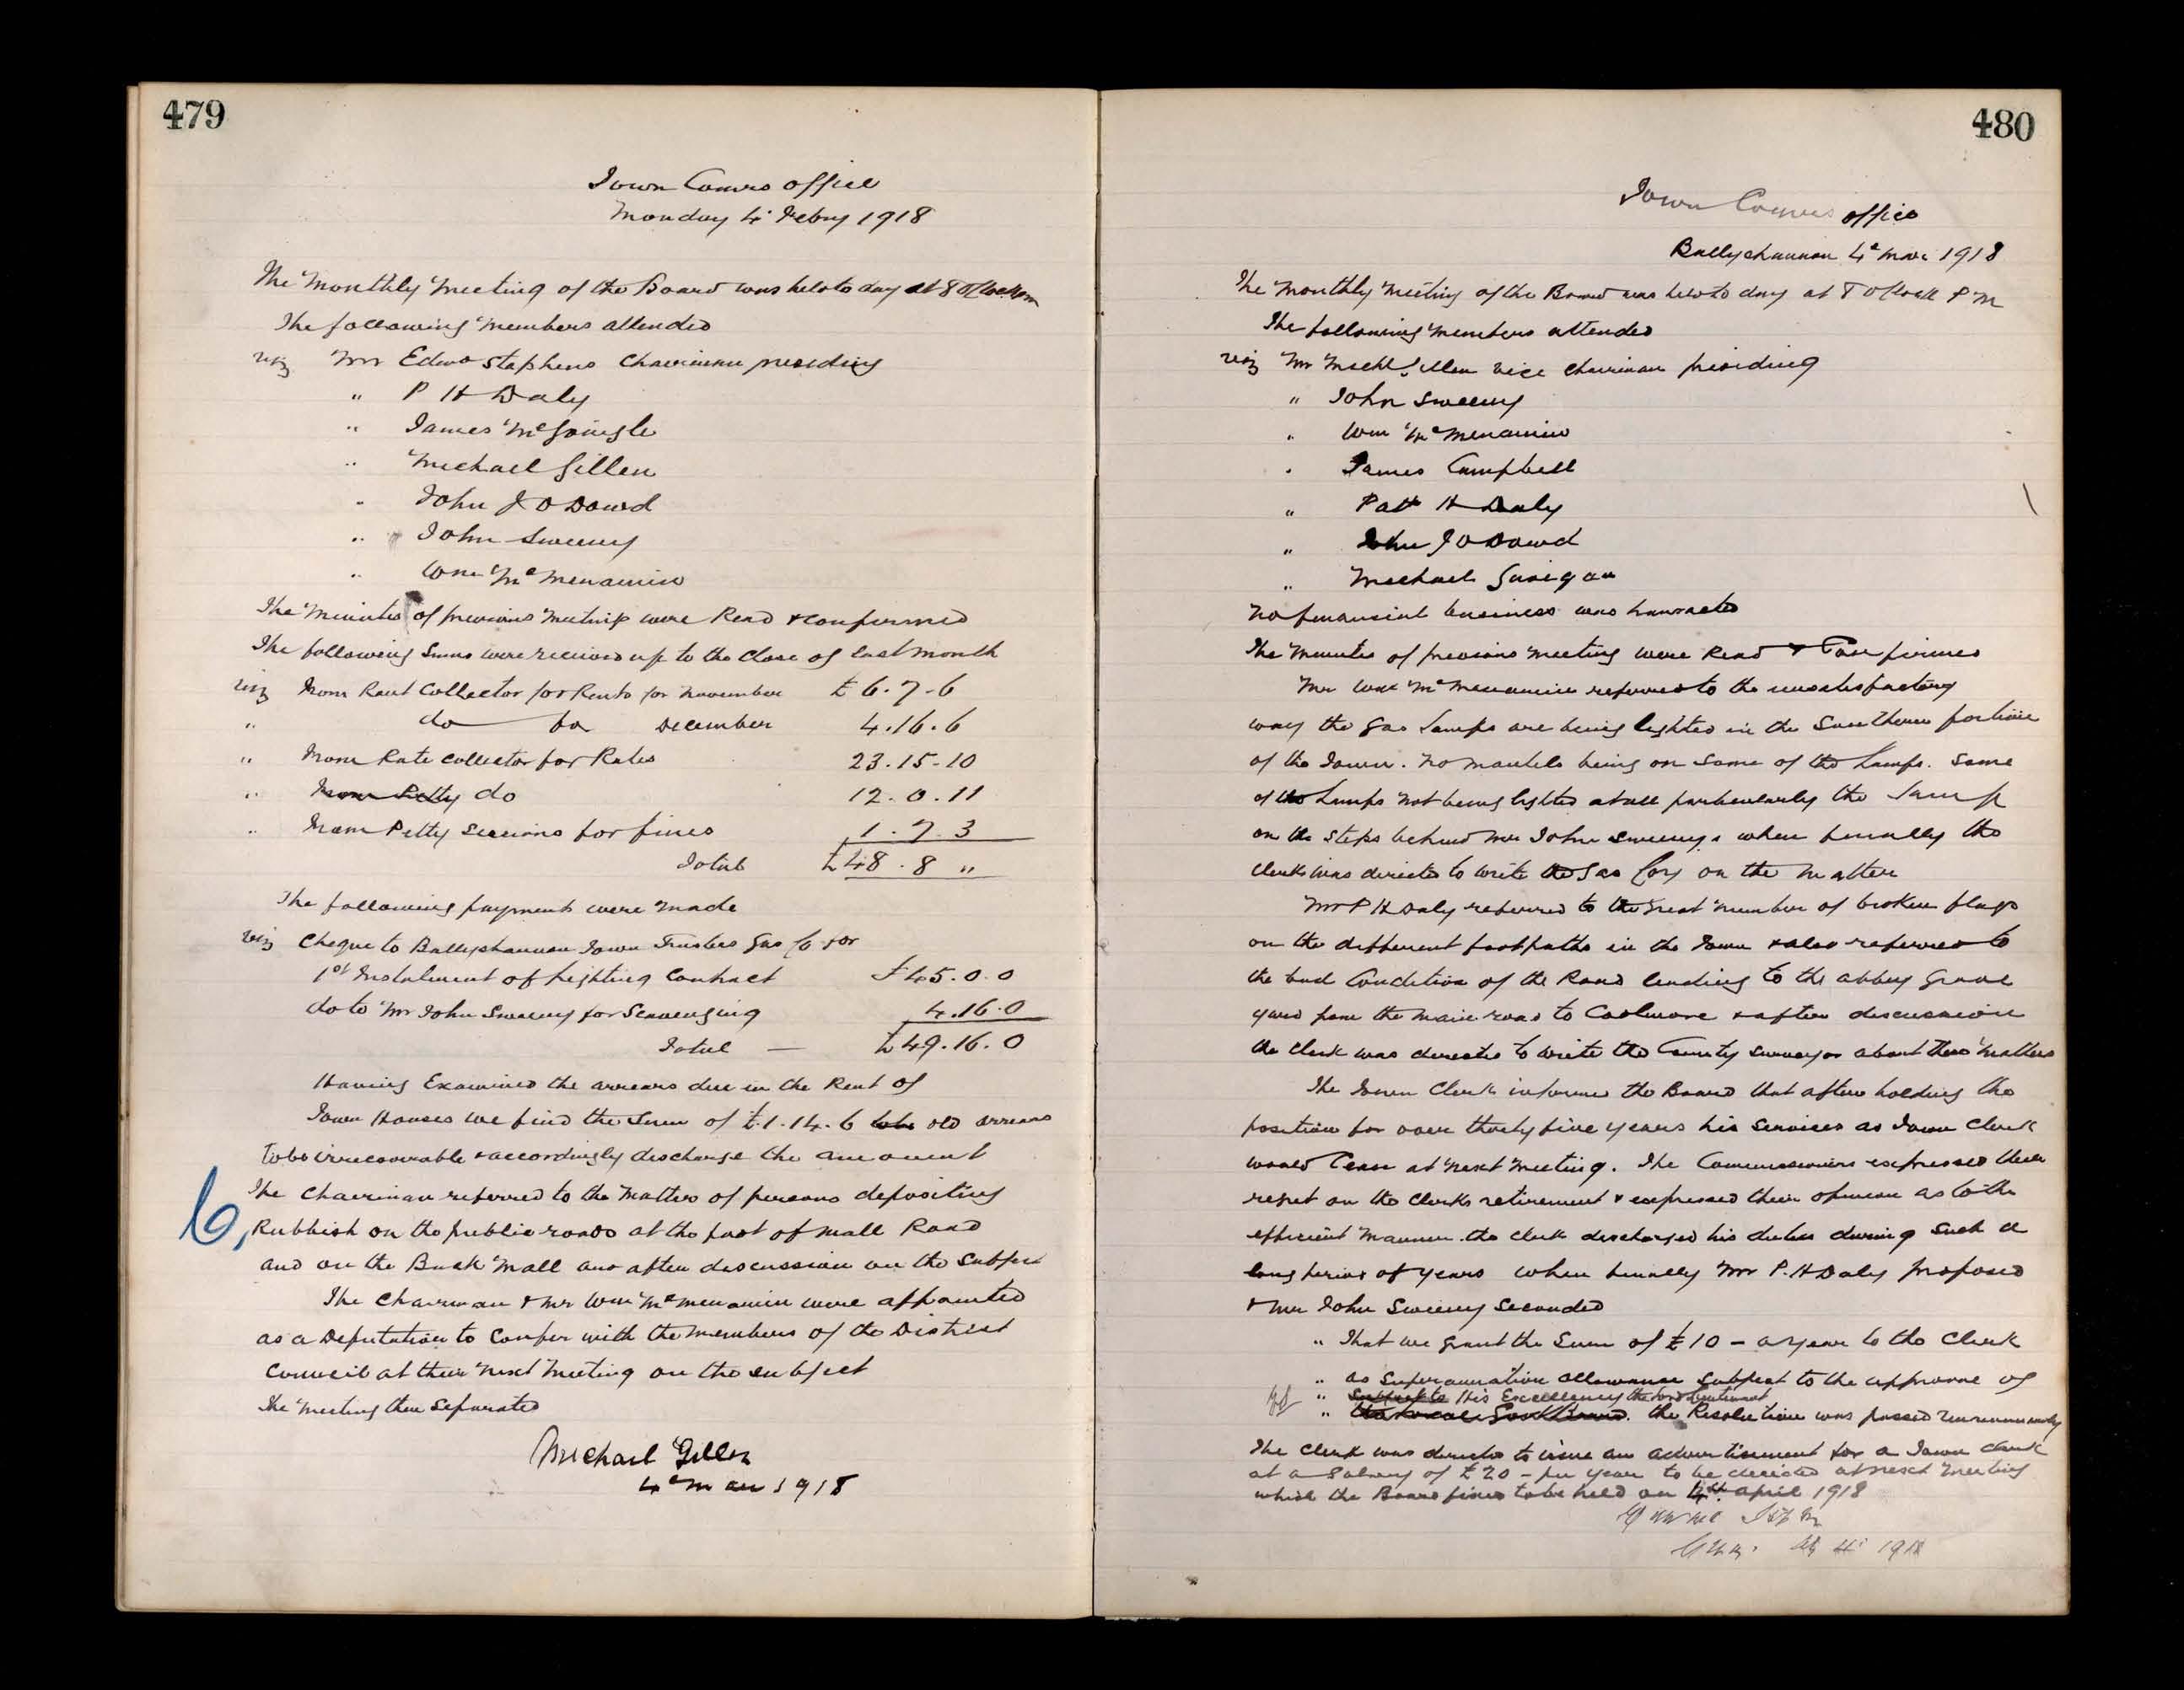 479
Town Comrs office
Monday 4th Febry 1918
The Monthly Meeting of the Board was held to day at 8 O'Clock Pm
The following Members attended
viz Mr Edwd Stephens Chairman presiding
" P H Daly
" James McGonigle
" Michael Gillen
" John J O Dowd
" John Sweeny
" Wm McMenamin
The Minutes of previous Meeting were Read & confirmed
The following Sums were received up to the Close of last month
viz From Rent Collector for Rents for November £6.7.6
" do for December 4.16.6
" From Rate Collector for Rates 23.15.10
" From Petty do 12.0.11
" From Petty Sessions for fines 1.7.3
Total £48.8 "
The following payments were made
viz Cheque to Ballyshannon Town Trustees Gas Co for
1st Instalment of Lighting Contract £45.0.0
do to Mr John Sweeny for Scavenging 4.16.0
Total — £49.16.0
Having Examined the arrears due in the Rent of
Town Houses we find the Sum of £1.14.6 to be old arrears
to be irrecoverable & accordingly discharge the amount
6, The Chairman referred to the Matter of persons depositing
Rubbish on the public roads at the foot of Mall Road
and on the Back Mall and after discussion on the Subject
The Chairman & Mr Wm McMenamin were appointed
as a Deputation to Confer with the Members of the District
Council at their next Meeting on the subject
The Meeting then Separated
Michael Gillen
4th Mar 1918
480
Town Comrs office
Ballyshannon 4th Mar 1918
The Monthly Meeting of the Board was held to day at 8 O'Clock P M
The following Members attended
viz Mr Michl Gillen Vice Chairman presiding
" John Sweeny
" Wm McMenamin
" James Campbell
" Patk H Daly
" John J O Dowd
" Michael
No financial business was transacted
The Minutes of previous Meeting were Read & Confirmed
Mr Wm McMenamin referred to the unsatisfactory
way the Gas Lamps are being lighted in the Southern portion
of the Town. No mantels being on Some of the Lamps. Some
of the Lamps not being lighted at all particularly the Lamp
on the Steps behind Mr John Sweeny's when finally the
Clerk was directed to write the Gas Coy on the Matter
Mr P H Daly referred to the Great Number of broken flags
on the different footpaths in the Town & also referred to
the bad Condition of the Road leading to the abbey Grave
yard from the Main road to Coolmore & after discussion
the Clerk was directed to write the County Surveyor about these Matters
The Town Clerk informed the Board that after holding the
position for over thirty five years his Services as Town Clerk
would Cease at next Meeting. The Commissioners expressed their
regret on the Clerks retirement & expressed their opinion as to the
efficient Manner the Clerk discharged his duties during Such a
long period of years when finally Mr P. H Daly proposed
& Mr John Sweeny Seconded
" That we grant the Sum of £10 - a year to the Clerk
" as Superannuation allowance Subject to the approval of
" Subject to His Excellency the Lord Lieutenant
" the Local Govt Board. the Resolution was passed unanimously
The Clerk was directed to issue an advertisement for a Town Clerk
at a Salary of £20 - per year to be elected at next Meeting
which the Board fixed to be held on 4th April 1918
4 1918